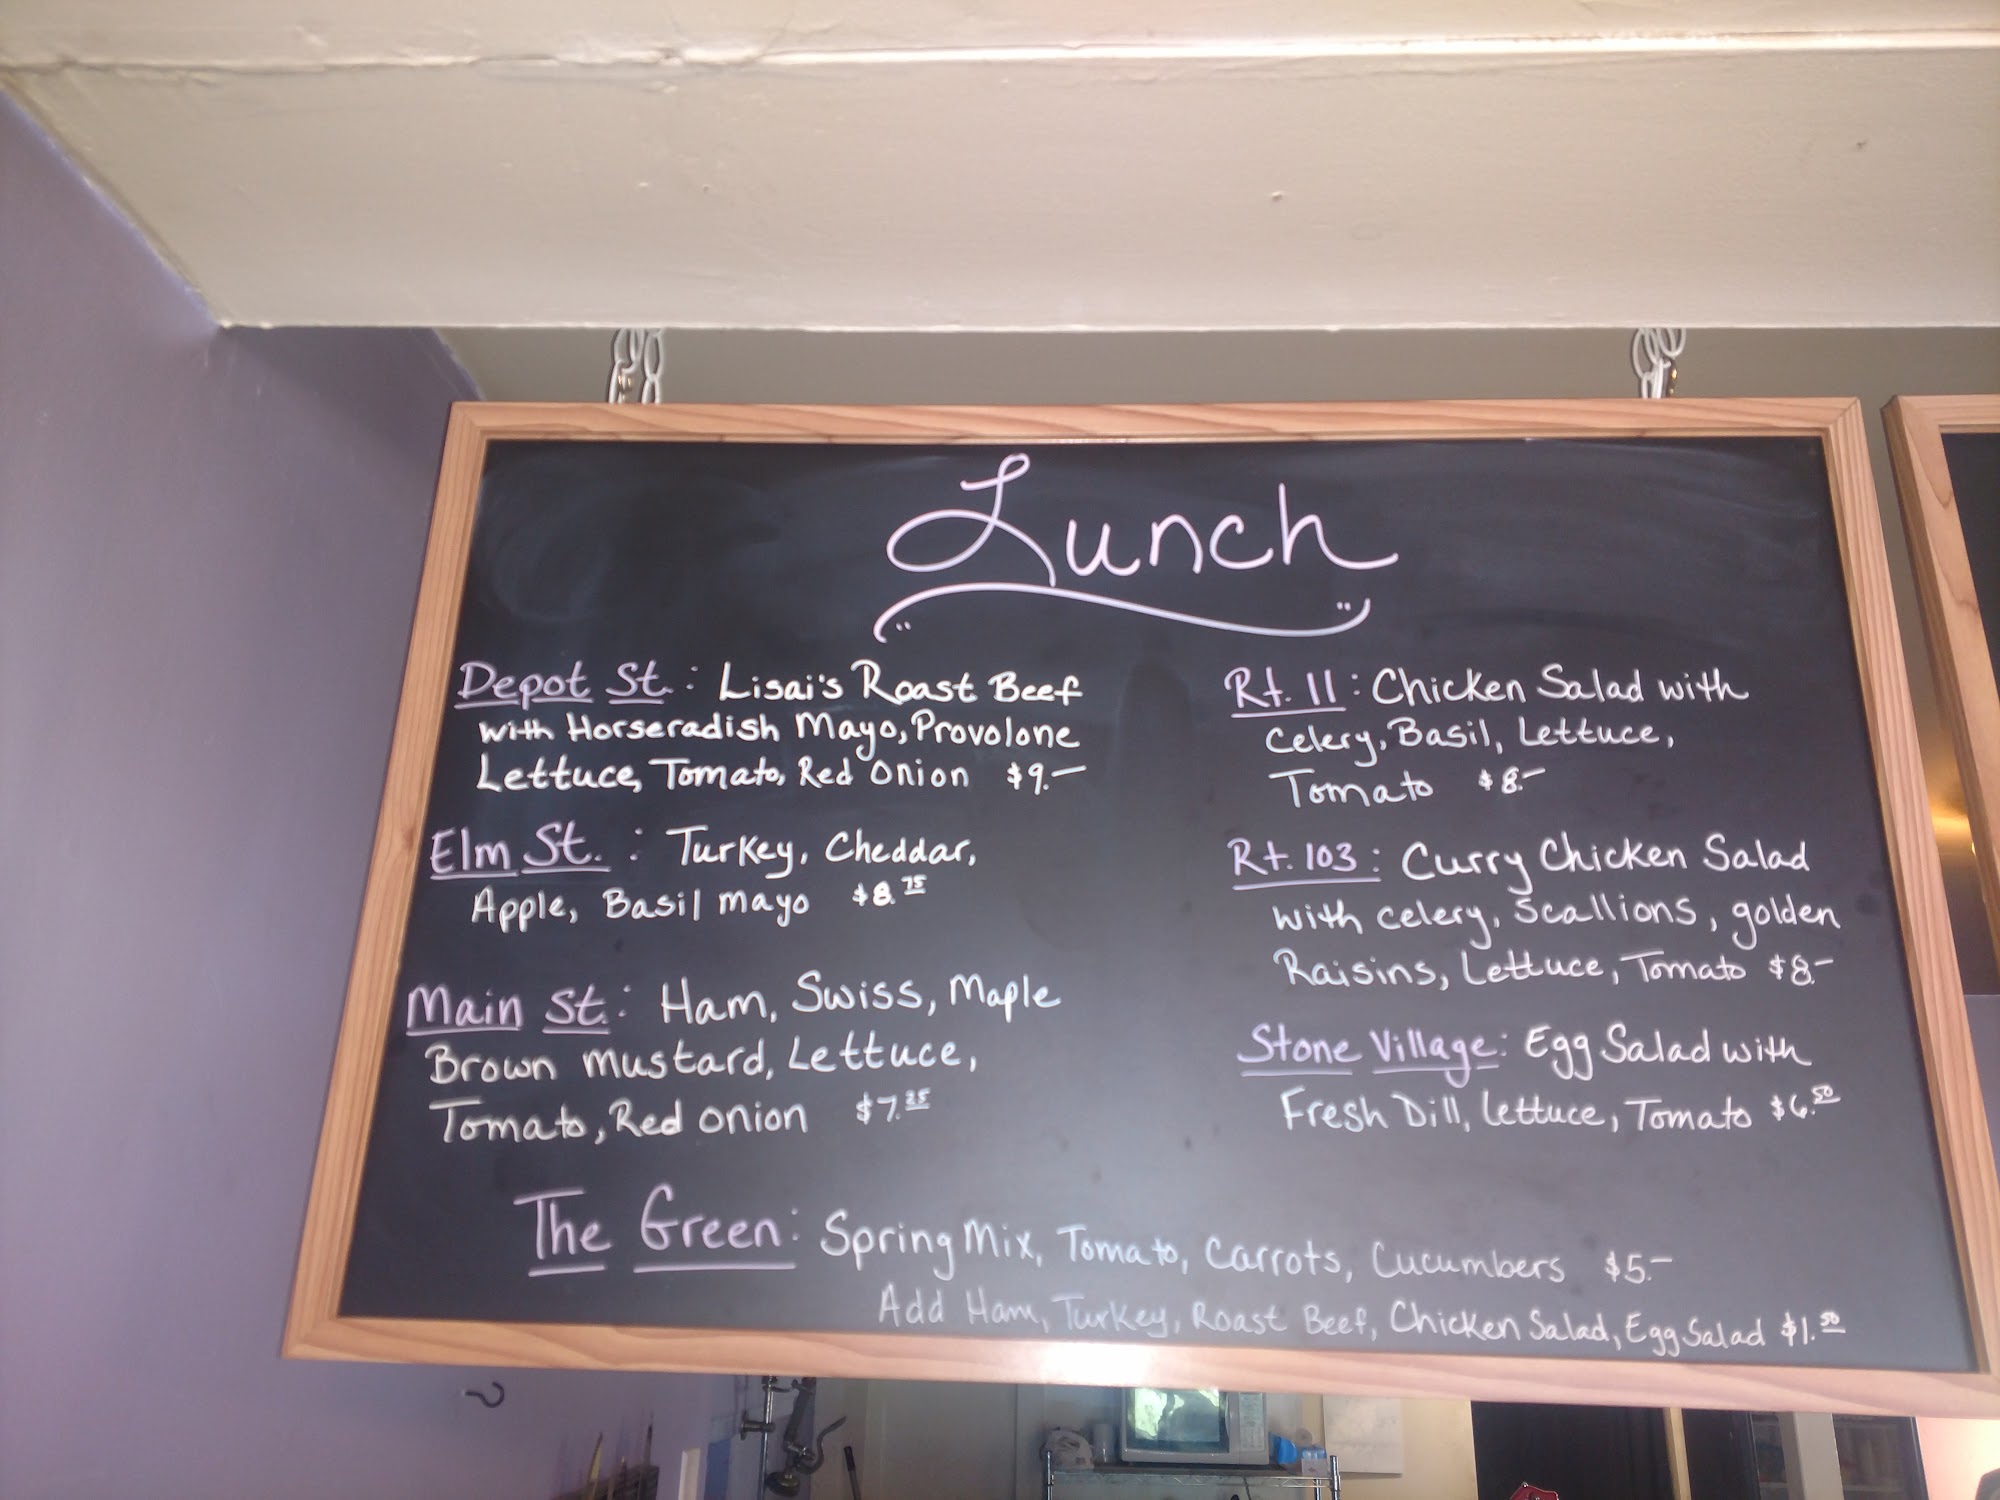 Lunch
Depot St.: Lisai's Roast Beef
with Horseradish Mayo, Provolone
Lettuce, Tomato, Red Onion $9.-
Elm St. : Turkey, Cheddar,
Apple, Basil mayo $8.75
Main St.: Ham, Swiss, Maple
Brown mustard, Lettuce,
Tomato, Red onion $7.25
Rt. 11 : Chicken Salad with
Celery, Basil, Lettuce,
Tomato $8.-
Rt. 103 : Curry Chicken Salad
with celery, scallions, golden
Raisins, Lettuce, Tomato $8.-
Stone Village: Egg Salad with
Fresh Dill, Lettuce, Tomato $6.50
The Green: Spring Mix, Tomato, Carrots, Cucumbers $5.-
Add Ham, Turkey, Roast Beef, Chicken Salad, Egg Salad $1.50